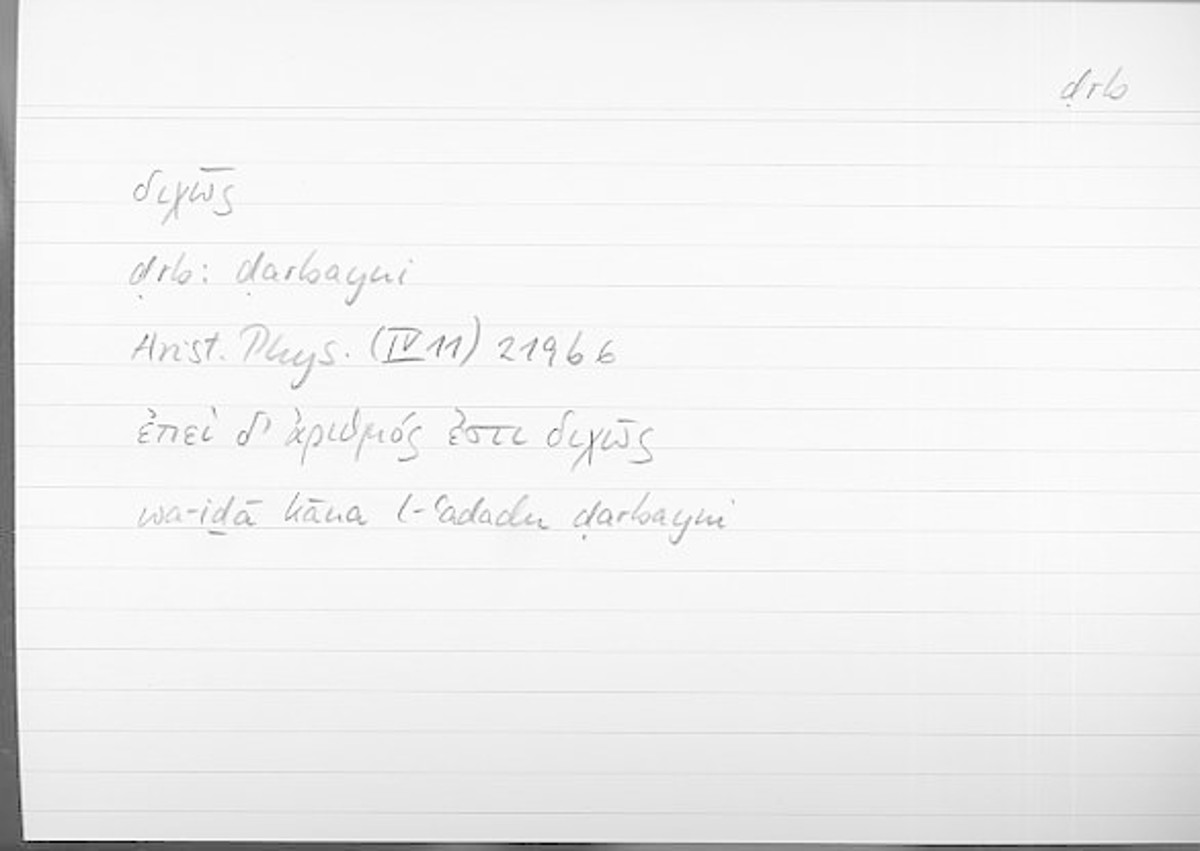 ḍrb
διχῶς
ḍrb: ḍarbayni
Arist. Phys. (IV 11) 219b6
ἐπεὶ δ' ἀριθμός ἐστι διχῶς
wa-iḏā kāna l-ʿadadu ḍarbayni